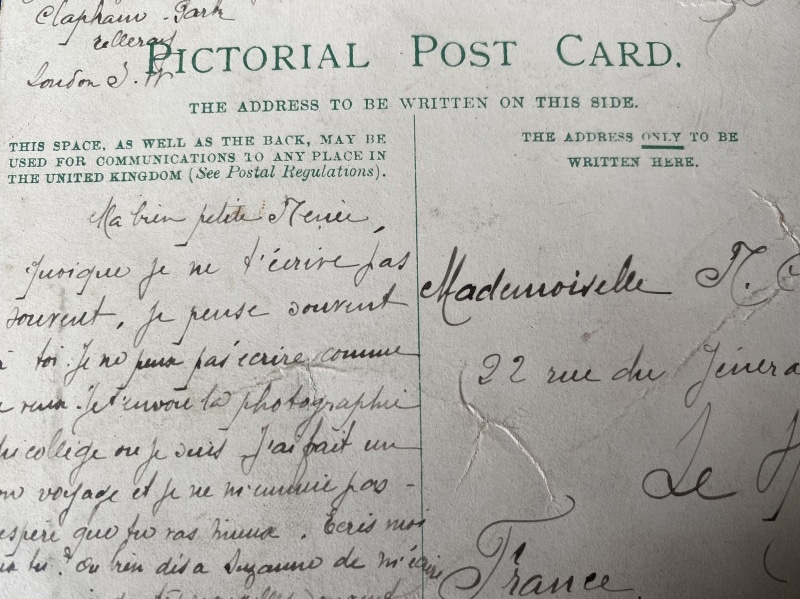 Clapham Park
London S.W
PICTORIAL POST CARD.
THE ADDRESS TO BE WRITTEN ON THIS SIDE.
THIS SPACE, AS WELL AS THE BACK, MAY BE
USED FOR COMMUNICATIONS TO ANY PLACE IN
THE UNITED KINGDOM (See Postal Regulations).
THE ADDRESS ONLY TO BE
WRITTEN HERE.
Ma bien petite
Quoique je ne t'écrive pas
souvent, je pense souvent
à toi. Je ne peux pas écrire comme
je veux. Je t'envoie la photographie
du collège ou je suis J'ai fait un
bon voyage et je ne m'ennuie pas -
espère que tu vas mieux. Écris moi
tu? Ou bien dis a Suzanne de m'écrire
Mademoiselle
22 rue du
Le
France